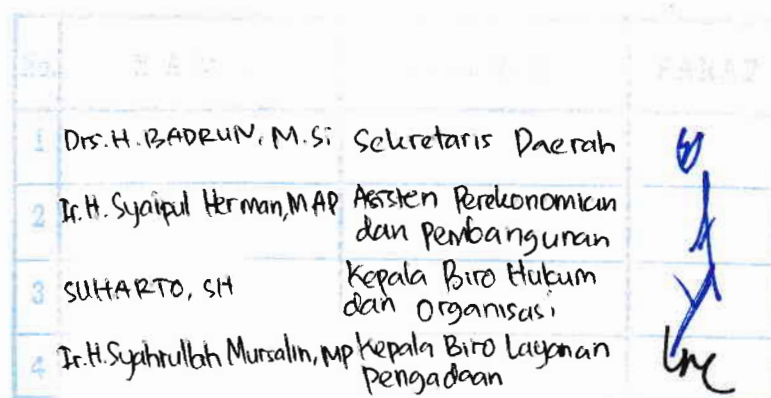 No. NAMA PARAF
1 Drs. H. BADRUN, M.Si Sekretaris Daerah
2 Ir. H. Syaipul Herman, MAP Asisten Perekonomian
dan Pembangunan
3 SUHARTO, SH Kepala Biro Hukum
dan Organisasi
4 Ir. H. Syahrullah Mursalin, MP Kepala Biro Layanan
Pengadaan